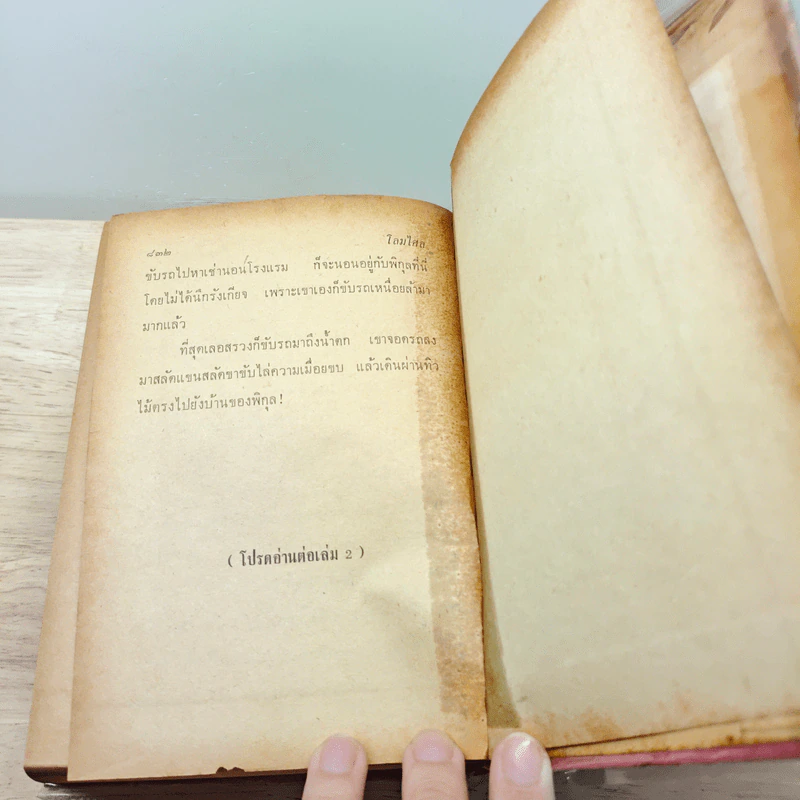 ๘๓๒ โลมไศล
ขับรถไปหาเช่านอนโรงแรม ก็จะนอนอยู่กับพิกุลที่นี่
โดยไม่ได้นึกรังเกียจ เพราะเขาเองก็ขับรถเหนื่อยล้ามา
มากแล้ว
ที่สุดเลอสรวงก็ขับรถมาถึงน้ำตก เขาจอดรถลง
มาสลัดแขนสลัดขาขับไล่ความเมื่อยขบ แล้วเดินผ่านทิว
ไม้ตรงไปยังบ้านของพิกุล!
( โปรดอ่านต่อเล่ม 2 )